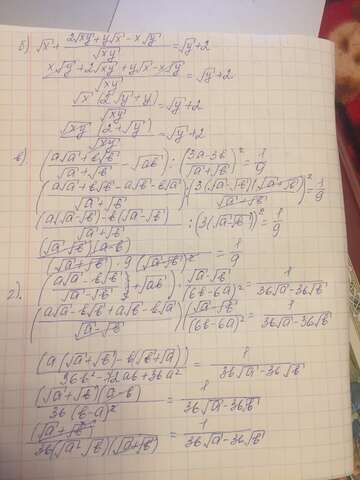 б) √x + (2√xy + y√x - x√y)/√xy = √y + 2
(x√y + 2√xy + y√x - x√y)/√xy = √y + 2
√x (2√y + y)/√xy = √y + 2
√xy (2 + √y)/√xy = √y + 2
в) ((a√a + b√b)/(√a + √b) - √ab) : ((3a - 3b)/(√a + √b))² = 1/9
((a√a + b√b - a√b - b√a)/(√a + √b)) : (3(√a - √b)(√a + √b)/(√a + √b))² = 1/9
(a(√a - √b) - b(√a - √b))/(√a + √b) : (3(√a - √b))² = 1/9
(√a - √b)(a - b)/((√a + √b) · 9(√a - √b)²) = 1/9
г). ((a√a - b√b)/(√a - √b) + √ab) · (√a - √b)/(6b - 6a)² = 1/(36√a - 36√b)
((a√a - b√b + a√b - b√a)/(√a - √b)) (√a - √b)/(6b - 6a)² = 1/(36√a - 36√b)
(a(√a + √b) - b(√b + √a))/(36b² - 72ab + 36a²) = 1/(36√a - 36√b)
(√a + √b)(a - b)/(36(b - a)²) = 1/(36√a - 36√b)
(√a + √b)/(36(√a - √b)(√a + √b)) = 1/(36√a - 36√b)